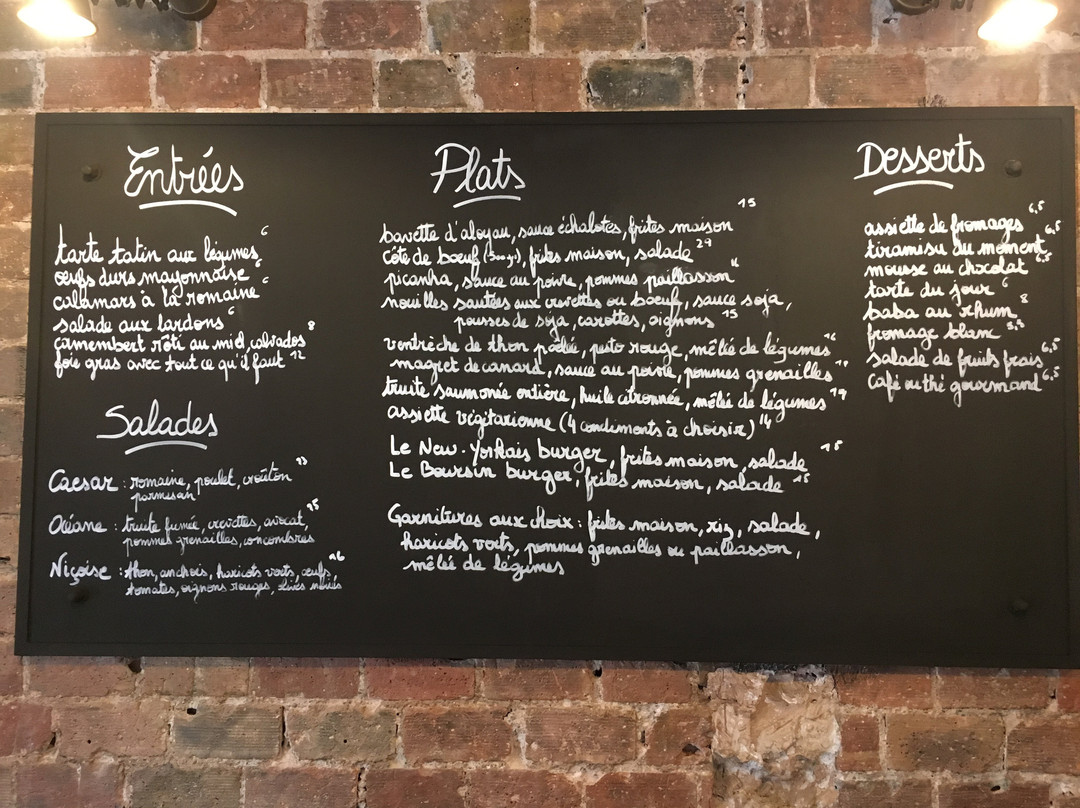 Entrées
tarte tatin aux légumes 6
œufs durs mayonnaise 6
calamars à la romaine 6
salade aux lardons 6
camembert rôti au miel, calvados 8
foie gras avec tout ce qu'il faut 12
Salades
Caesar : romaine, poulet, croûton 13
parmesan
Océane : truite fumée, crevettes, avocat, 15
pommes grenailles, concombres
Niçoise : thon, anchois, haricots verts, œufs 16
tomates, oignons rouges, olives noires
Plats
bavette d'aloyau, sauce échalotes, frites maison 15
côte de bœuf (500gr), frites maison, salade 29
picanha, sauce au poivre, pommes paillasson
nouilles sautées aux crevettes ou boeuf, sauce soja,
pousses de soja, carottes, oignons 15
ventrèche de thon poêlée, pesto rouge, mêlée de légumes 16
magret de canard, sauce au poivre, pommes grenailles
truite saumonée entière, huile citronnée, mêlée de légumes 19
assiette végétarienne (4 condiments à choisir) 14
Le New-Yorkais burger, frites maison, salade 15
Le Boursin burger, frites maison, salade 15
Garnitures aux choix : frites maison, riz, salade,
haricots verts, pommes grenailles ou paillasson,
mêlée de légumes
Desserts
assiette de fromages 6,5
tiramisu du moment 6,5
mousse au chocolat 6,5
tarte du jour 6
baba au rhum 8
fromage blanc 3,5
salade de fruits frais 6,5
café ou thé gourmand 6,5